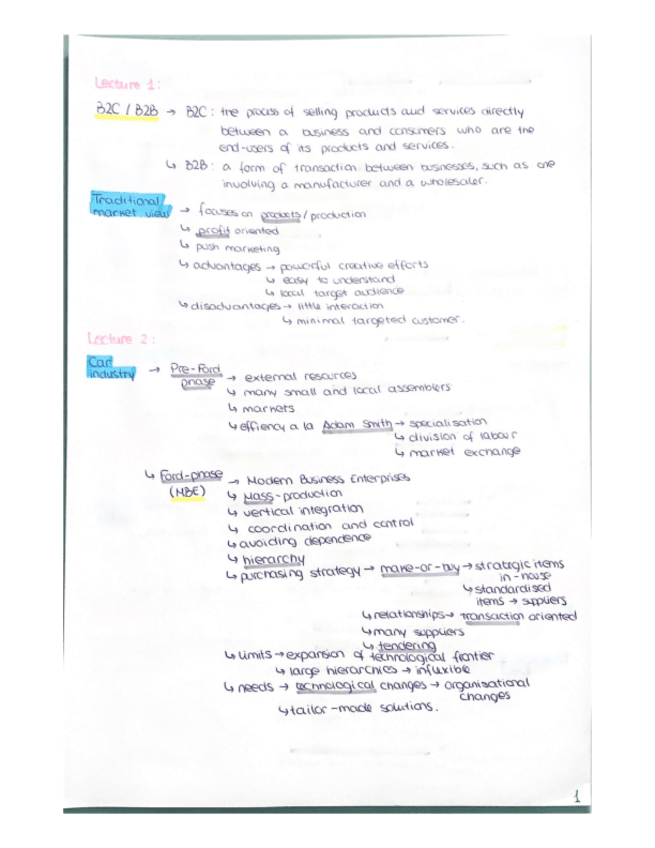 Lecture 1:
B2C / B2B → B2C: the process of selling products and services directly
between a business and consumers who are the
end-users of its products and services.
↳ B2B: a form of transaction between businesses, such as one
involving a manufacturer and a wholesaler.
Traditional
market view → focuses on products / production
↳ profit oriented
↳ push marketing
↳ advantages → powerful creative efforts
↳ easy to understand
↳ local target audience
↳ disadvantages → little interaction
↳ minimal targeted customer.
Lecture 2:
Car
industry → Pre-Ford
phase → external resources
↳ many small and local assemblers
↳ markets
↳ effiency a la Adam Smith → specialisation
↳ division of labour
↳ market exchange
↳ Ford-phase
(MBE) → Modern Business Enterprises
↳ Mass-production
↳ vertical integration
↳ coordination and control
↳ avoiding dependence
↳ hierarchy
↳ purchasing strategy → make-or-buy → strategic items
in-house
↳ standardised
items → suppliers
↳ relationships → transaction oriented
↳ many suppliers
↳ tendering
↳ limits → expansion of technological frontier
↳ large hierarchies → infuxible
↳ needs → technological changes → organisational
changes
↳ tailor-made solutions.
1